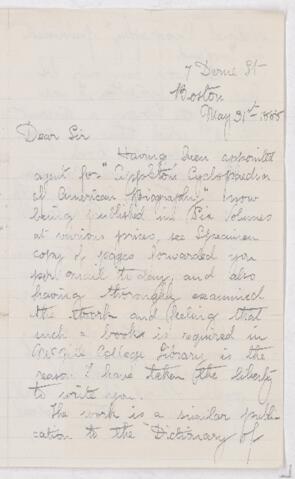 7 Derne St
Boston
May 31st 1888
Dear Sir
Having been appointed
agent for "Appleton's Cyclopaedia
of American Biography" now
being published in Six Volumes
at various prices, see Specimen
copy & pages forwarded you
per mail to day, and also
having thoroughly examined
the Work and feeling that
such a book is required in
College Library is the
reason I have taken the liberty
to write you.
The work is a similar publi-
cation to the "Dictionary of